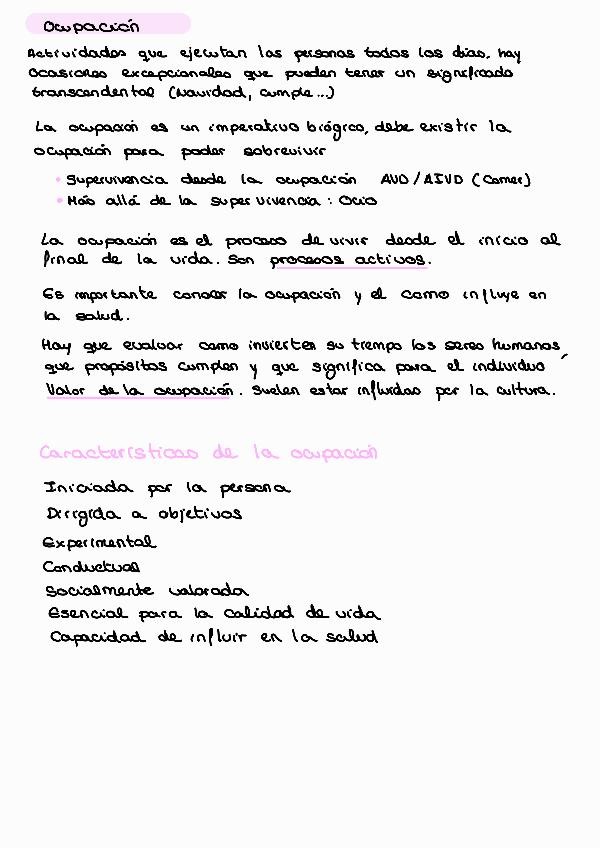 Ocupación
Actividades que ejecutan las personas todos los días, hay
ocasiones excepcionales que pueden tener un significado
transcendental (Navidad, cumple...)
La ocupación es un imperativo biógico, debe existir la
ocupación para poder sobrevivir
• Supervivencia desde la ocupación AVD/AIVD (Comer)
• Más allá de la supervivencia: Ocio
La ocupación es el proceso de vivir desde el inicio al
final de la vida. Son procesos activos.
Es importante conocer la ocupación y el como influye en
la salud.
Hay que evaluar como invierten su tiempo los seres humanos,
que propósitos cumplen y que significa para el individuo
Valor de la ocupación. Suelen estar influidas por la cultura.
Características de la ocupación
Iniciada por la persona
Dirigida a objetivos
Experimental
Conductual
Socialmente valorada
Esencial para la calidad de vida
Capacidad de influir en la salud